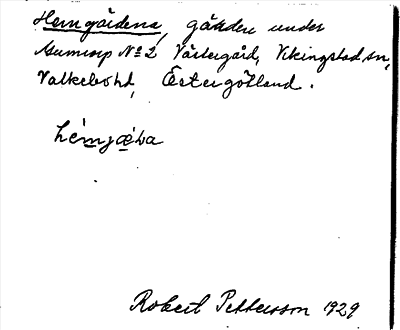 Hemgårdena, gärden under
Gumtorp No 2 Västergård, Vikingstad sn,
Valkebo hd, Östergötland.
hémjæ̀ɹa
Robert Pettersson 1929